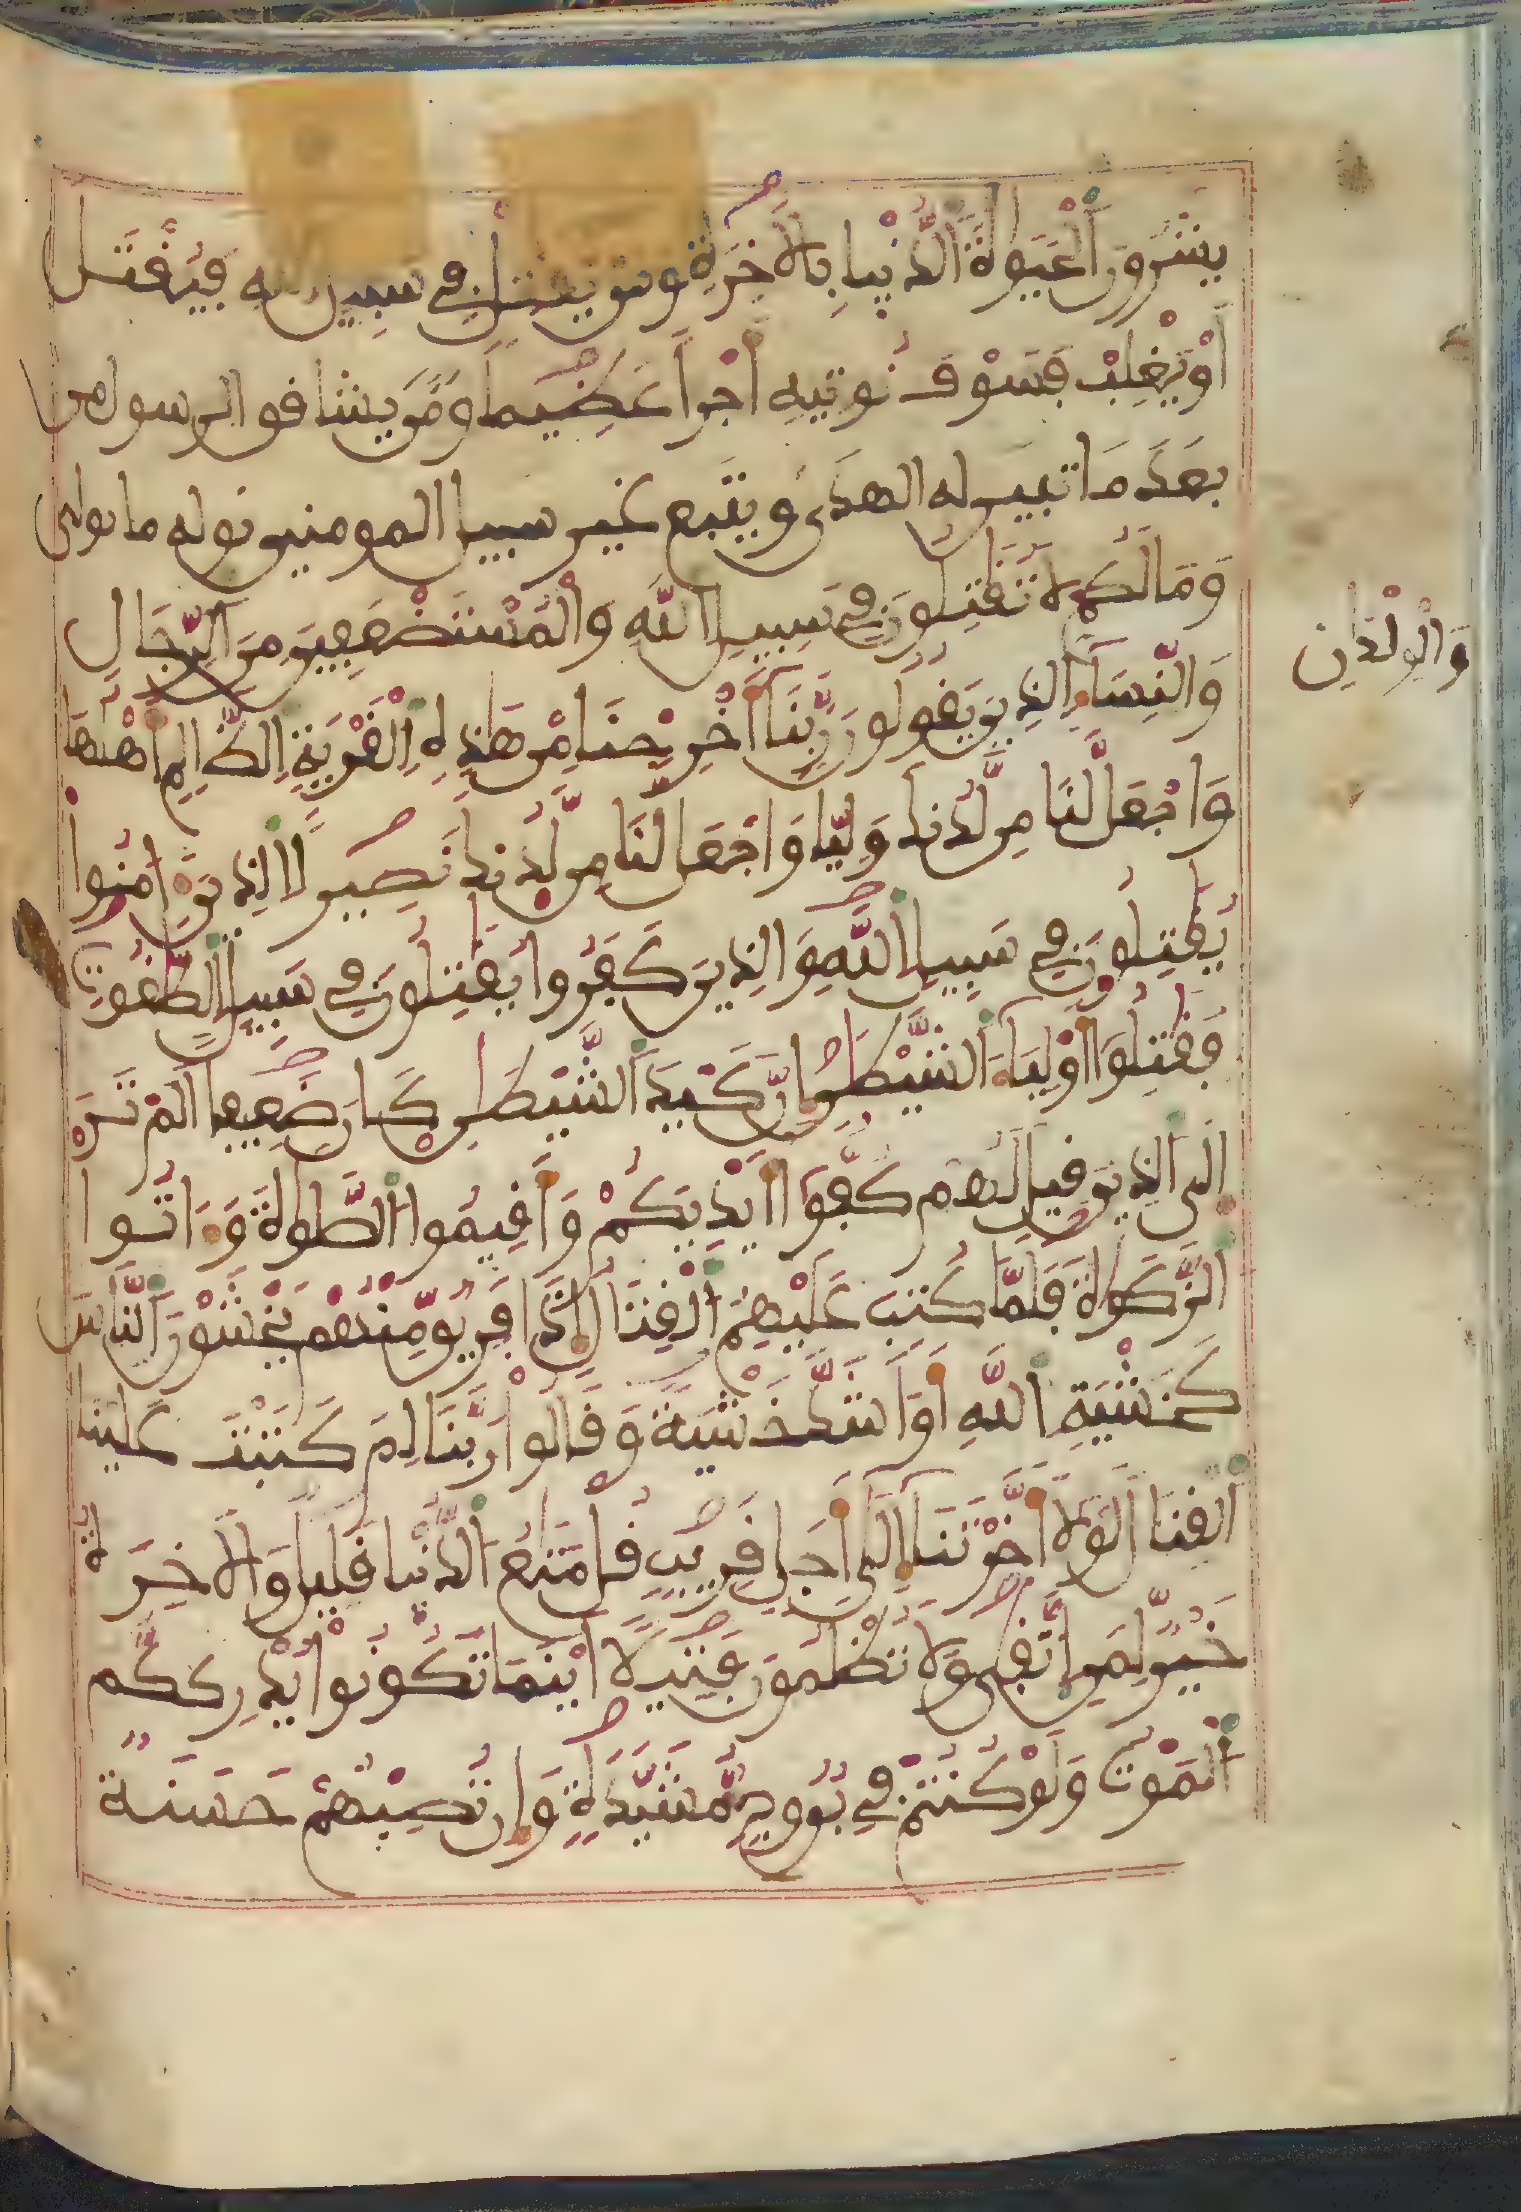 يشرون الحيوة الدنيا بالاخرة ومن يقتل في سبيل الله فيقتل
أو يغلب فسوف نوتيه أجرا عظيما ومن يشافق الرسول من
بعد ما تبين له الهدى ويتبع غير سبيل المومنين نوله ما تولى
وما لكم لا تقتلون في سبيل الله والمستضعفين من الرجال
والنساء الذين يقولون ربنا أخرجنا من هذه القرية الظالم أهلها
واجعل لنا من لدنك وليا واجعل لنا من لدنك نصيرا الذين ءامنوا
يقتلون في سبيل الله والذين كفروا يقتلون في سبيل الطغوت
فقتلوا أولياء الشيطن إن كيد الشيطن كان ضعيفا ألم تر
إلى الذين قيل لهم كفوا أيديكم وأقيموا الصلوة وءاتوا
الزكوة فلما كتب عليهم القتال إذا فريق منهم يخشون الناس
كخشية الله أو أشد خشية وقالوا ربنا لم كتبت علينا
القتال لولا أخرتنا إلى أجل قريب قل متع الدنيا قليل والاخرة
خير لمن اتقى ولا تظلمون فتيلا أينما تكونوا يدرككم
الموت ولو كنتم في بروج مشيدة وإن تصبهم حسنة
والولدان